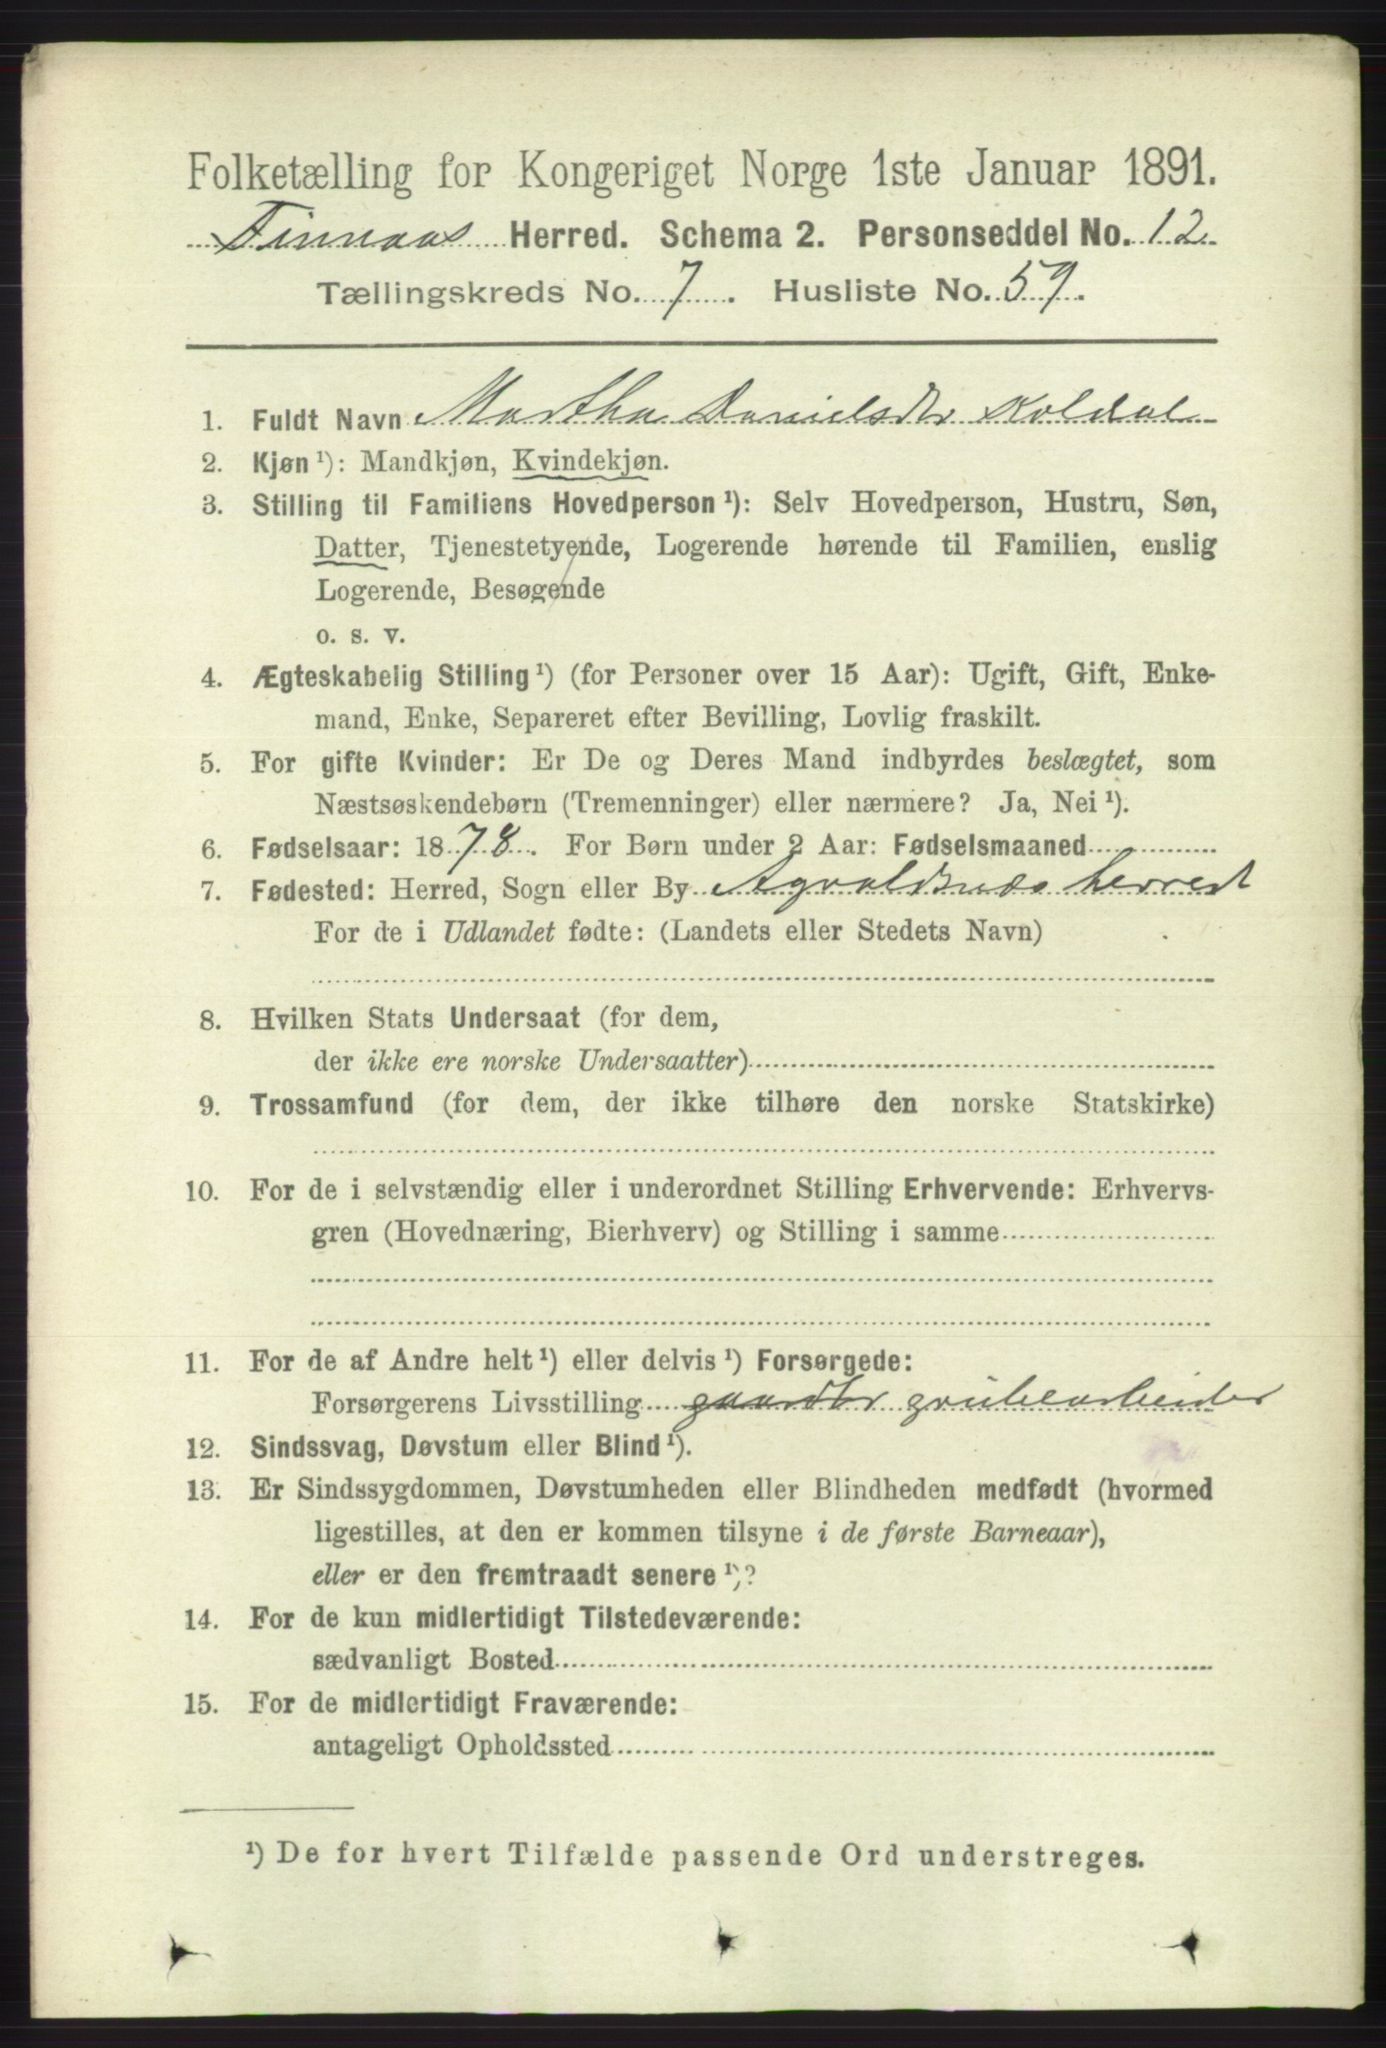 Folketælling for Kongeriget Norge 1ste Januar 1891.
Finnaas Herred. Schema 2. Personseddel No. 12.
Tællingskreds No. 7. Husliste No. 59.
1. Fuldt Navn Martha Danielsdtr Koldal
2. Kjøn ¹): Mandkjøn, Kvindekjøn.
3. Stilling til Familiens Hovedperson ¹): Selv Hovedperson, Hustru, Søn,
Datter, Tjenestetyende, Logerende hørende til Familien, enslig
Logerende, Besøgende
o. s. v.
4. Ægteskabelig Stilling ¹) (for Personer over 15 Aar): Ugift, Gift, Enke-
mand, Enke, Separeret efter Bevilling, Lovlig fraskilt.
5. For gifte Kvinder: Er De og Deres Mand indbyrdes beslægtet, som
Næstsøskendebørn (Tremenninger) eller nærmere? Ja, Nei ¹).
6. Fødselsaar: 1878. For Børn under 2 Aar: Fødselsmaaned
7. Fødested: Herred, Sogn eller By Agvaldsnæs herred
For de i Udlandet fødte: (Landets eller Stedets Navn)
8. Hvilken Stats Undersaat (for dem,
der ikke ere norske Undersaatter)
9. Trossamfund (for dem, der ikke tilhøre den norske Statskirke)
10. For de i selvstændig eller i underordnet Stilling Erhvervende: Erhvervs-
gren (Hovednæring, Bierhverv) og Stilling i samme
11. For de af Andre helt ¹) eller delvis ¹) Forsørgede:
Forsørgerens Livsstilling grubearbeider
12. Sindssvag, Døvstum eller Blind ¹).
13. Er Sindssygdommen, Døvstumheden eller Blindheden medfødt (hvormed
ligestilles, at den er kommen tilsyne i de første Barneaar),
eller er den fremtraadt senere ¹)?
14. For de kun midlertidigt Tilstedeværende:
sædvanligt Bosted
15. For de midlertidigt Fraværende:
antageligt Opholdssted
¹) De for hvert Tilfælde passende Ord understreges.